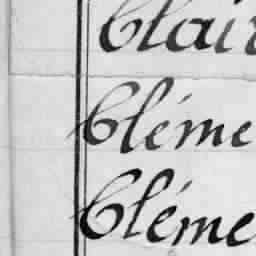 Clair
Cléme
Cléme